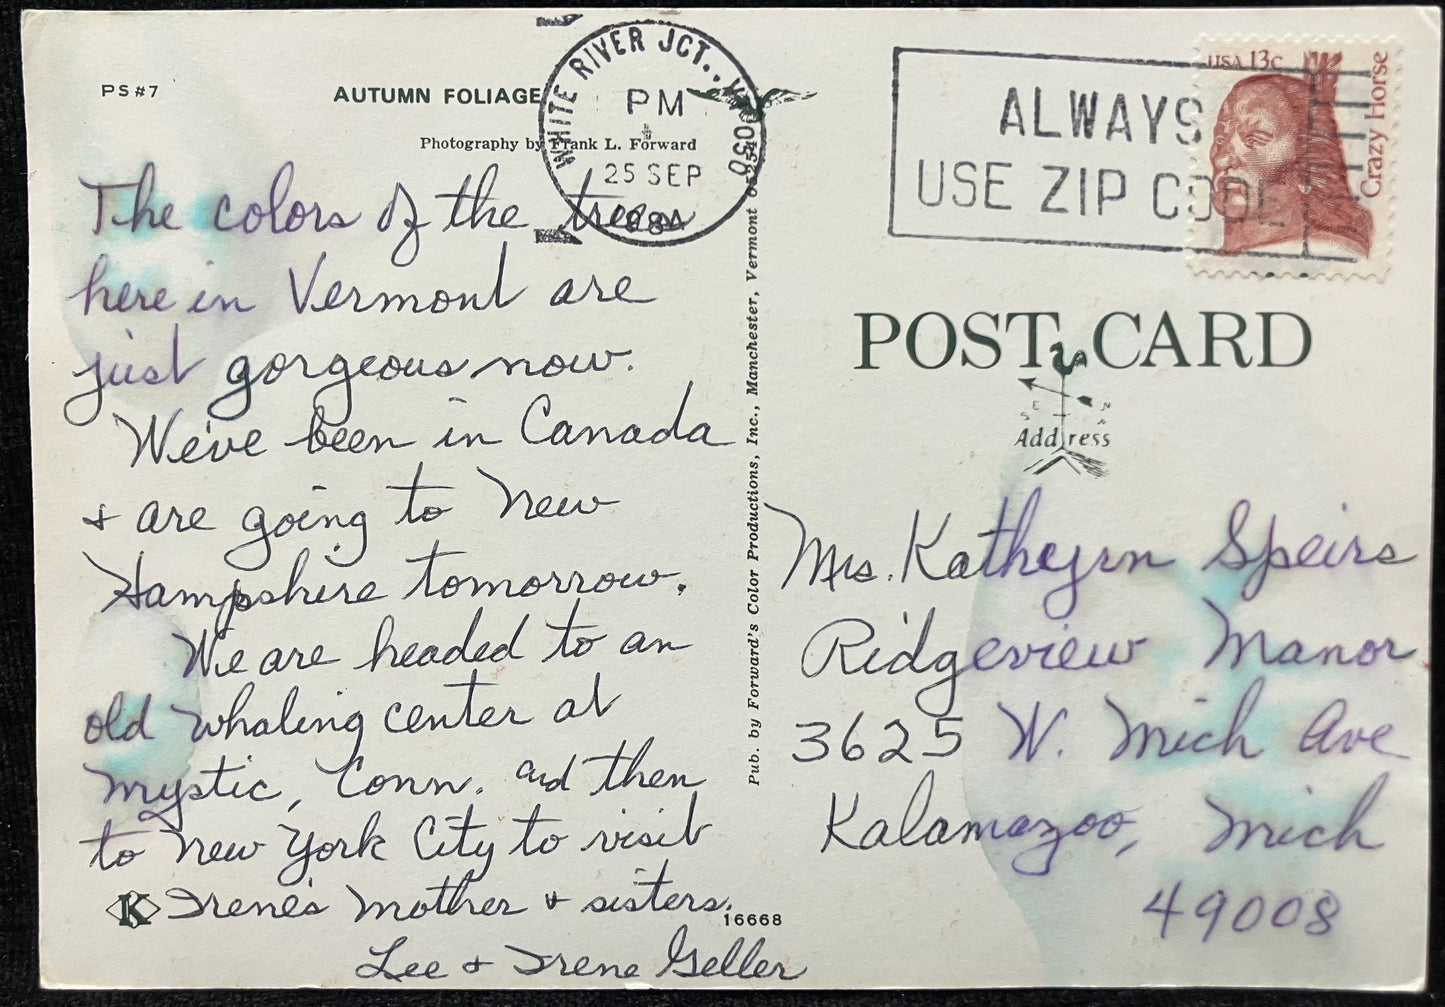 PS#7
AUTUMN FOLIAGE
Photography by Frank L. Forward
WHITE RIVER JCT., VT 050
PM
25 SEP
1984
ALWAYS
USE ZIP CODE
USA 13c
Crazy Horse
The colors of the trees
here in Vermont are
just gorgeous now.
We've been in Canada
+ are going to New
Hampshire tomorrow.
We are headed to an
old whaling center at
Mystic, Conn. and then
to New York City to visit
Irene's Mother + sisters.
Lee + Irene Geller
K
16668
Pub. by Forward's Color Productions, Inc., Manchester, Vermont 05254
POST CARD
N
E
S
Address
Mrs. Kathryn Speirs
Ridgeview Manor
3625 W. Mich Ave
Kalamazoo, Mich
49008